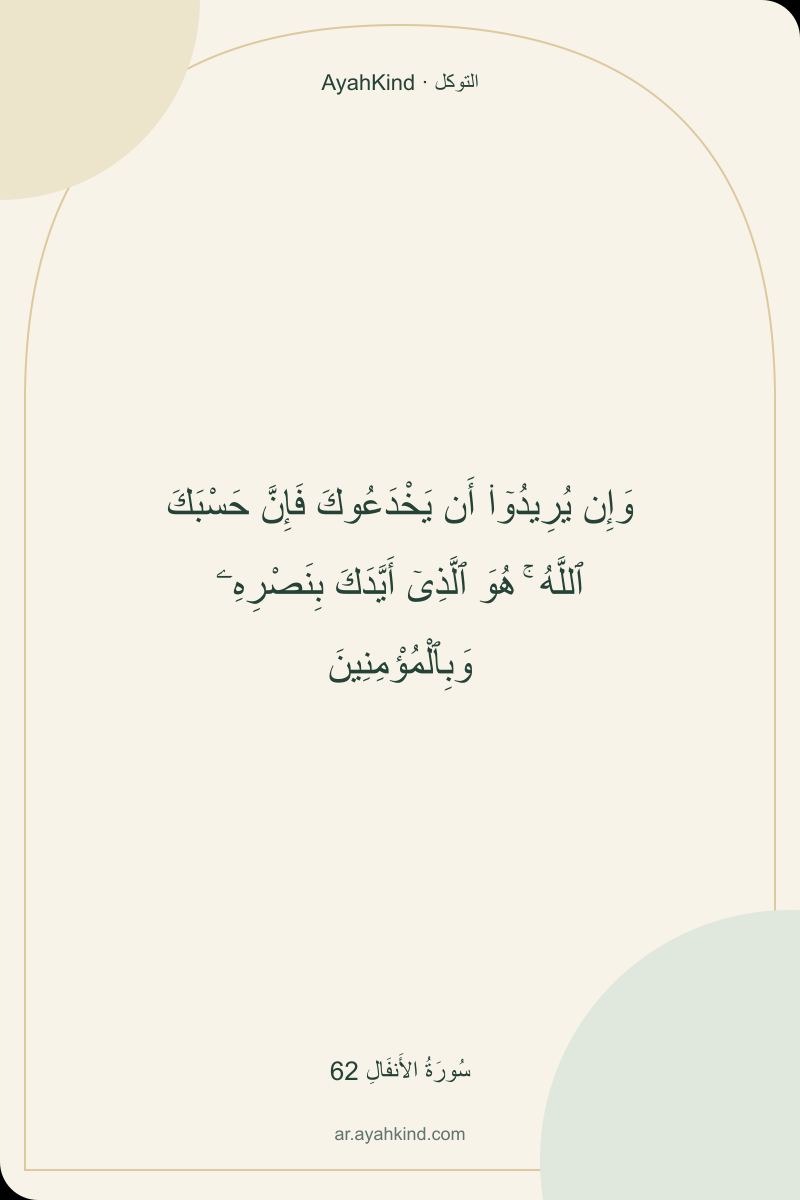 التوكل · AyahKind
وَإِن يُرِيدُوٓا۟ أَن يَخْدَعُوكَ فَإِنَّ حَسْبَكَ
ٱللَّهُ ۚ هُوَ ٱلَّذِىٓ أَيَّدَكَ بِنَصْرِهِۦ
وَبِٱلْمُؤْمِنِينَ
سُورَةُ الأَنفَالِ 62
ar.ayahkind.com